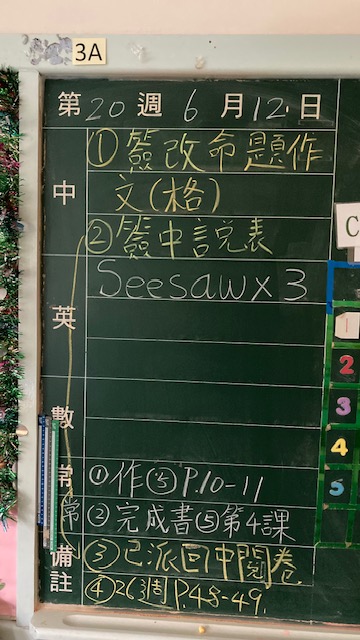 3A
第20週6月12日
中
①簽改命題作
文(格)
②簽中說表
英
Seesaw x 3
數
常
①作⑤P.10-11
常
②完成書⑤第4課
備註
③已派回中閱卷
④263周P.48-49.
C
1
2
3
4
5